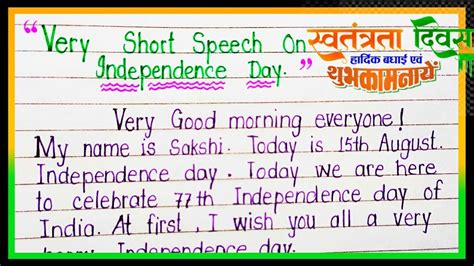 "Very Short Speech On
Independence Day."
स्वतंत्रता दिवस
हार्दिक बधाई एवं
शुभकामनायें
Very Good morning everyone!
My name is Sakshi. Today is 15th August.
Independence day. Today we are here
to celebrate 77th Independence day of
India. At first, I wish you all a very
happy Independence day.